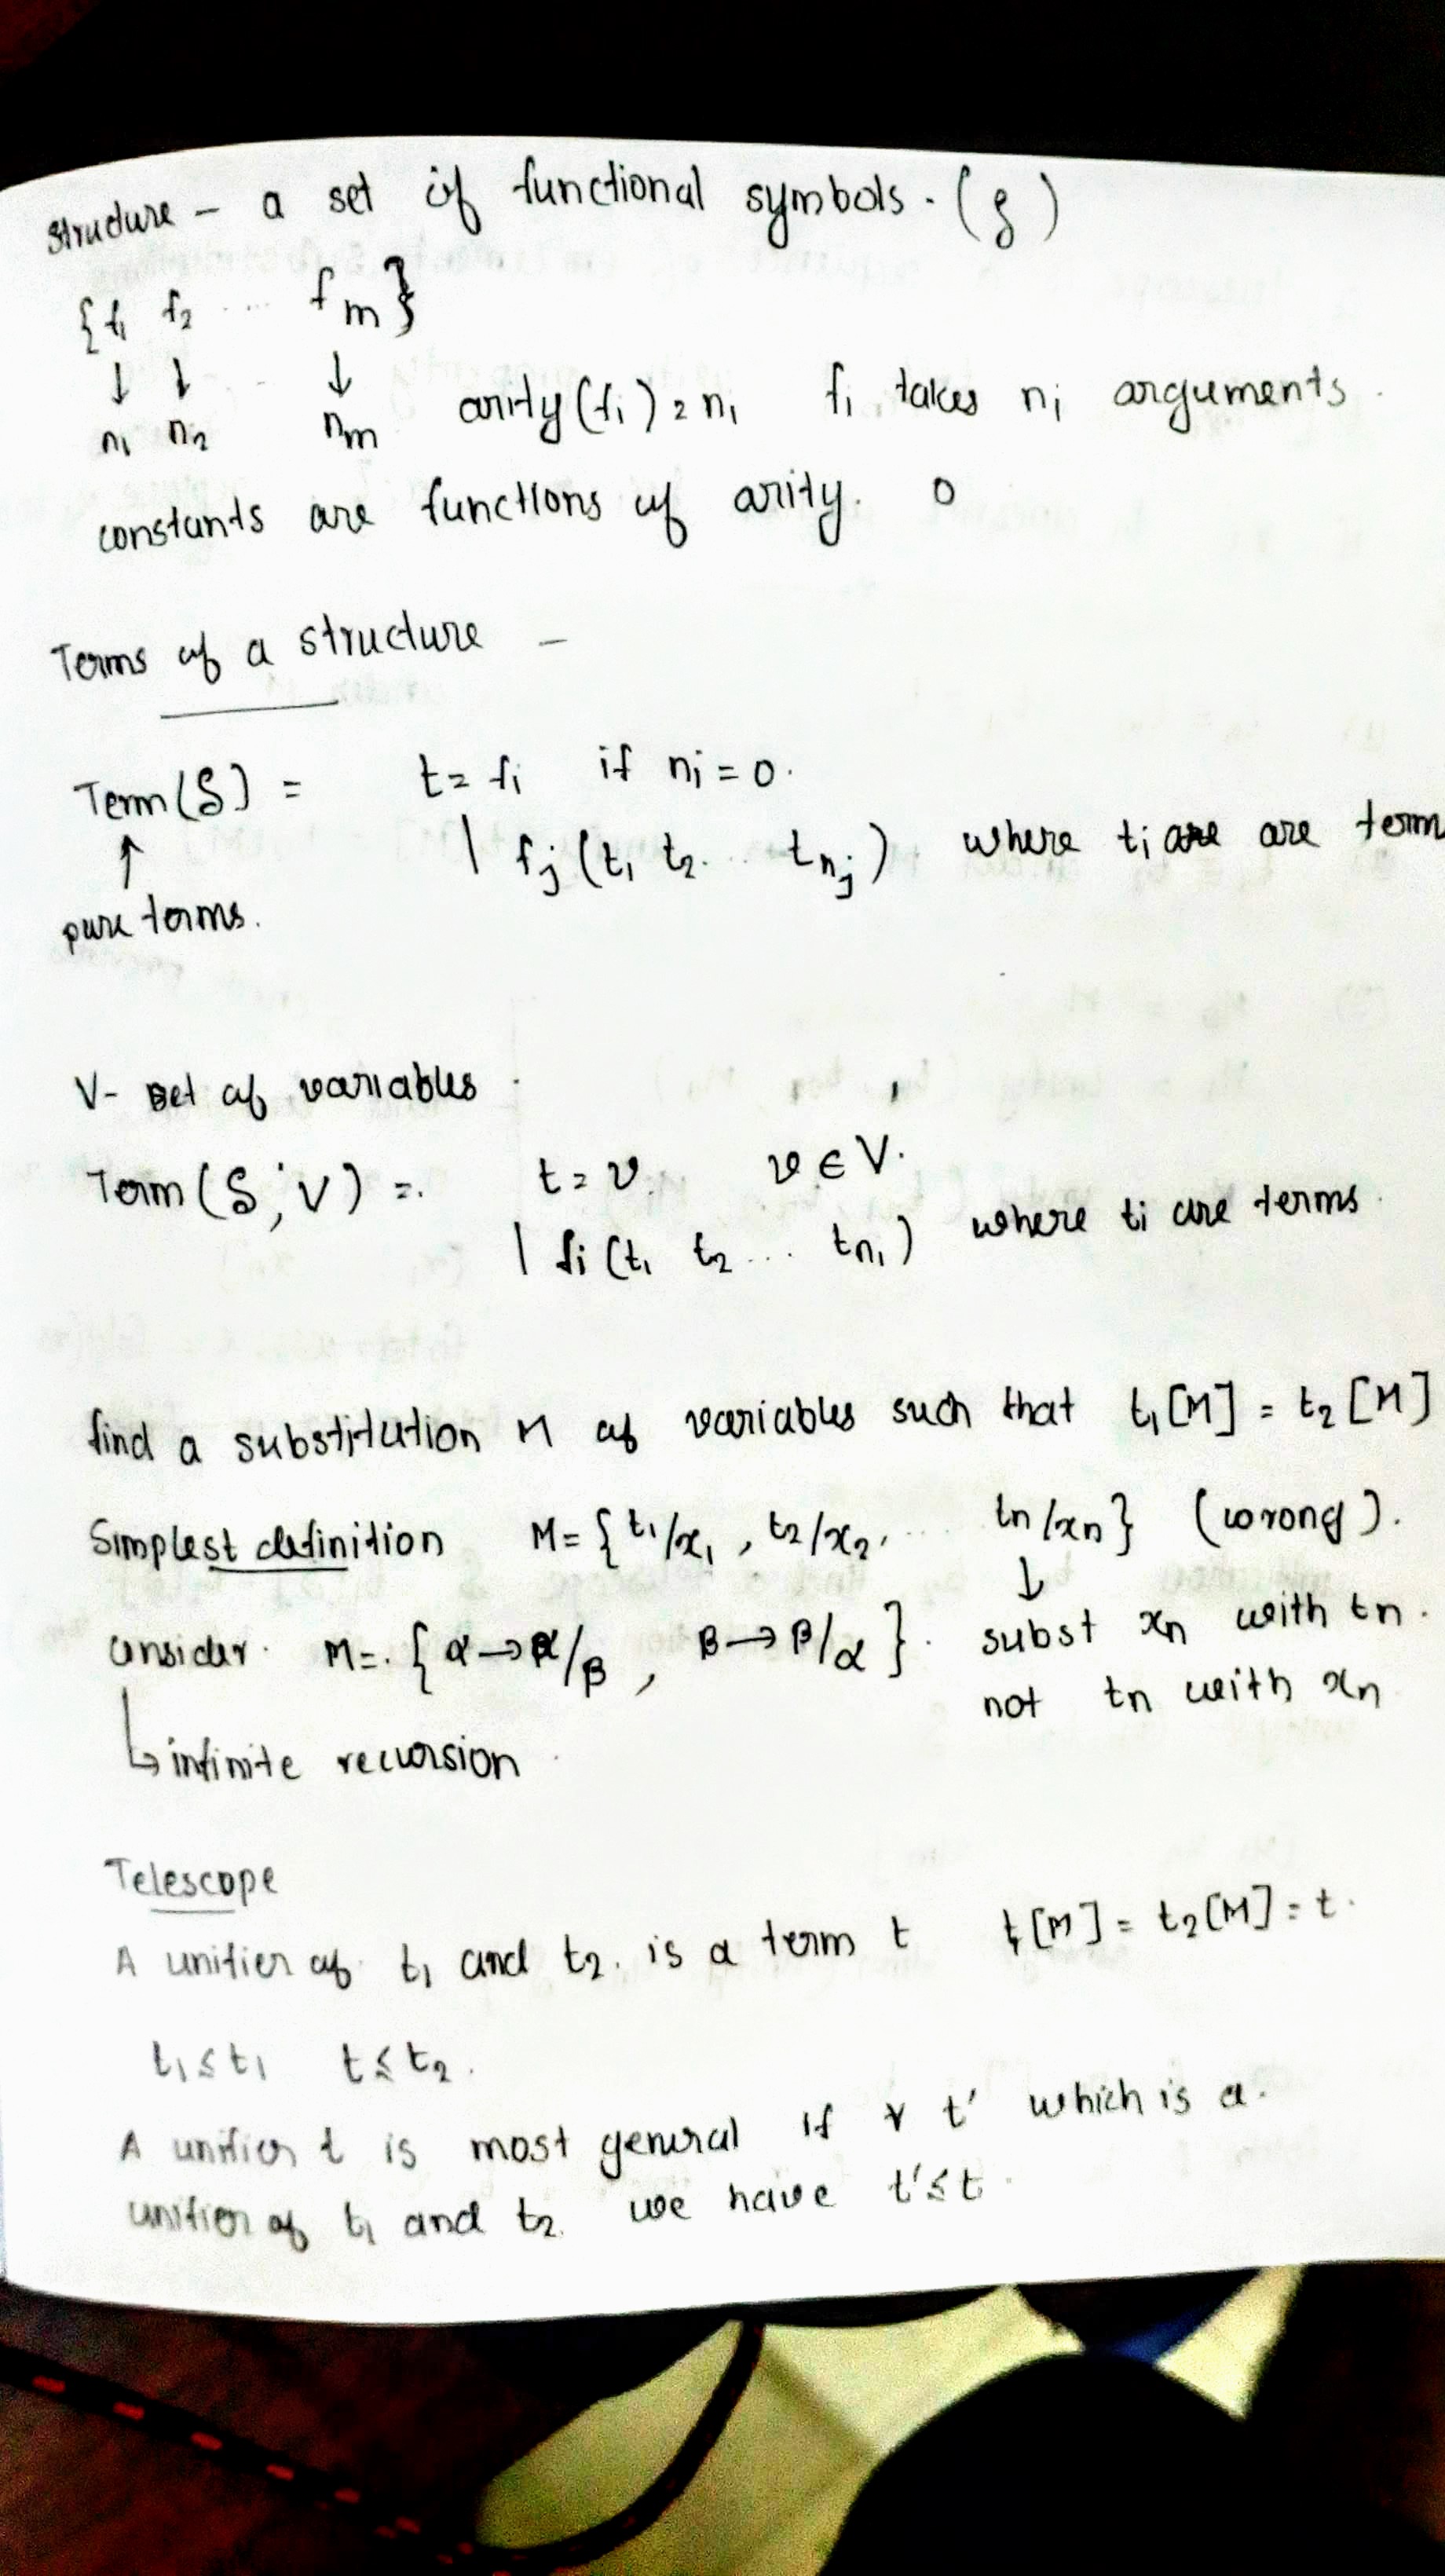 structure - a set of functional symbols. (S)
{f1 f2 ... fm}
↓ ↓ ... ↓
n1 n2 nm arity(fi) = ni fi takes ni arguments.
constants are functions of arity. 0
Terms of a structure -
Term(S) = t = fi if ni = 0.
↑ | fj (t1 t2 ... tnj) where ti are are term
pure terms.
V- set of variables.
Term(S; V) = t = v. v ∈ V.
| fi (t1 t2 ... tni) where ti are terms.
find a substitution M of variables such that t1[M] = t2[M]
Simplest definition M = {t1/x1, t2/x2, ... tn/xn} (wrong).
↓
consider. M = {α → α/β, β → β/α}. subst xn with tn.
not tn with xn
↳ infinite recursion.
Telescope
A unifier of t1 and t2. is a term t t[M] = t2[M] = t.
t1 ≤ t1 t ≤ t2.
A unifier t is most general if ∀ t' which is a.
unifier of t1 and t2. we have t' ≤ t.